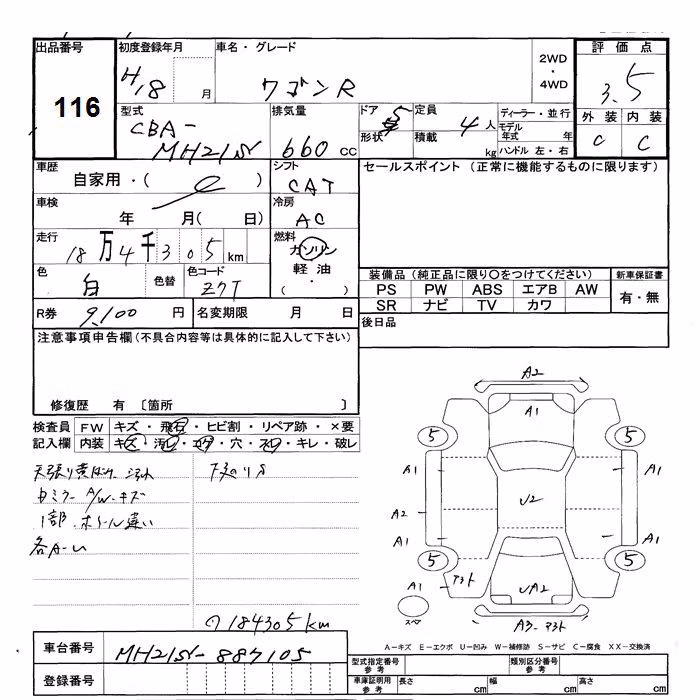 出品番号 初度登録年月 車名・グレード 評価点
116
H18 月 ワゴンR 2WD・4WD 3.5
型式 排気量 ドア 定員 ディーラー・並行 外装 内装
CBA-MH21S 660cc 5 4人 モデル年式 年 C C
形状 積載 kg ハンドル 左・右
車歴 シフト セールスポイント (正常に機能するものに限ります)
自家用・( ) CAT
車検 冷房
年 月( 日) AC
走行 燃料
18万4千305km ガソリン
軽油
・( )
色 色替 色コード 装備品(純正品に限り○をつけてください) 新車保証書
白 Z7T PS PW ABS エアB AW 有・無
SR ナビ TV カワ
R券 9,100円 名変期限 月 日 後日品
注意事項申告欄(不具合内容等は具体的に記入して下さい)
修復歴 有 〔箇所 〕
検査員 FW キズ・飛石・ヒビ割・リペア跡・×要
記入欄 内装 キズ・汚・コゲ・穴・スレ・キレ・破レ
天張り黄ばけ 下廻りS
Wミラー A/W キズ
1部 ホイール違い
各A-U
184305km
A2
A1
5 5
A1 A1
A2 U2
A1 A1
5 5
A1 UA2
スペア A3
A-キズ E-エクボ U-凹み W-補修跡 S-サビ C-腐食 XX-交換済
車台番号 MH21S-887105 型式指定番号 参考 類別区分番号 参考
登録番号 車庫証明用 参考 長さ cm 幅 cm 高さ cm